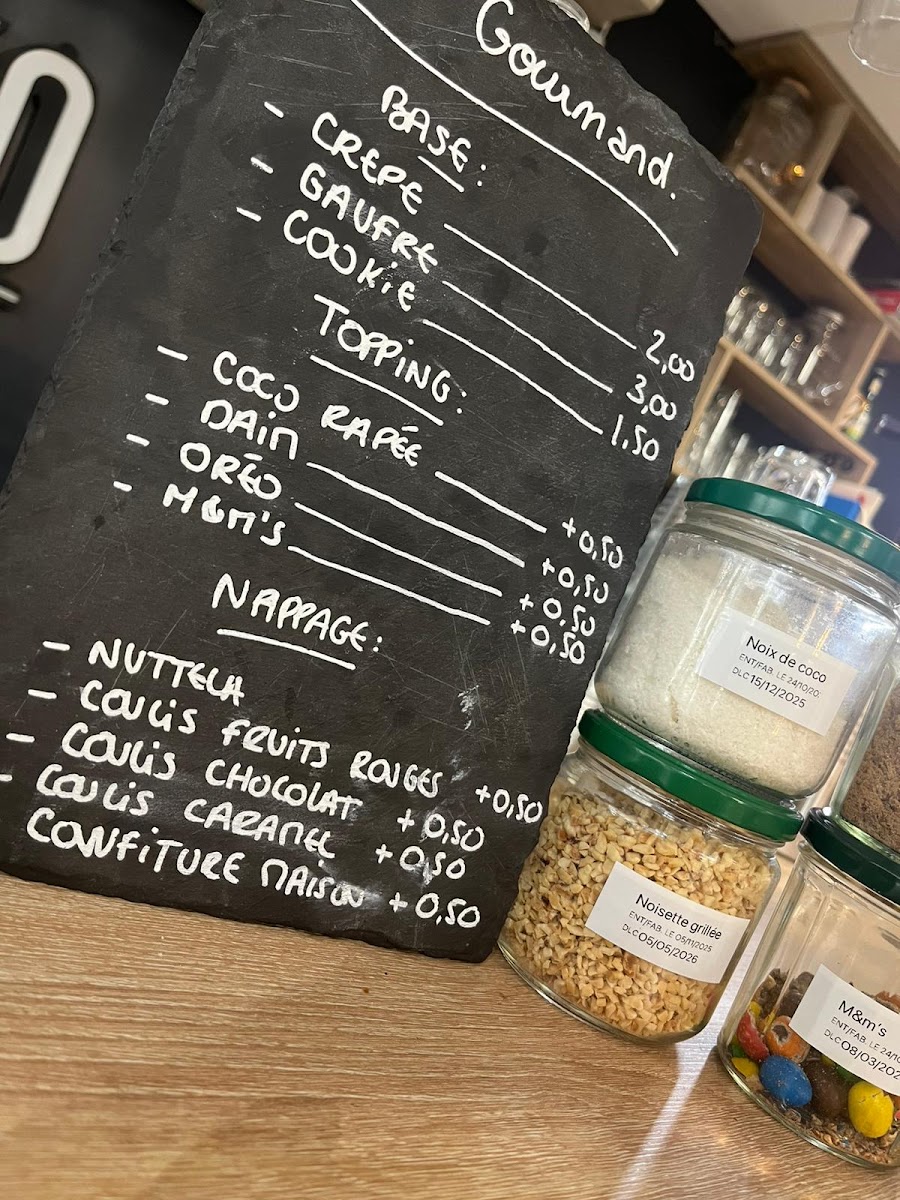 Gourmand.
BASE:
- CREPE 2,00
- GAUFRE 3,00
- COOKiE 1.50
TOPPiNG:
- COCO RAPÉE +0,50
- DAiM +0,50
- ORÉO +0,50
- M&M'S +0,50
NAPPAGE:
- NUTTELA
- COULiS FRUiTS ROUGES +0,50
- COULiS CHOCOLAT +0,50
- COULiS CARAMEL +0,50
- CONFiTURE MAiSON +0,50
Noix de coco
ENT/FAB. LE 24/10/20
DLC 15/12/2025
Noisette grillée
ENT/FAB. LE 05/11/2025
DLC 05/05/2026
M&m's
ENT/FAB. LE 24/10
DLC 08/03/202